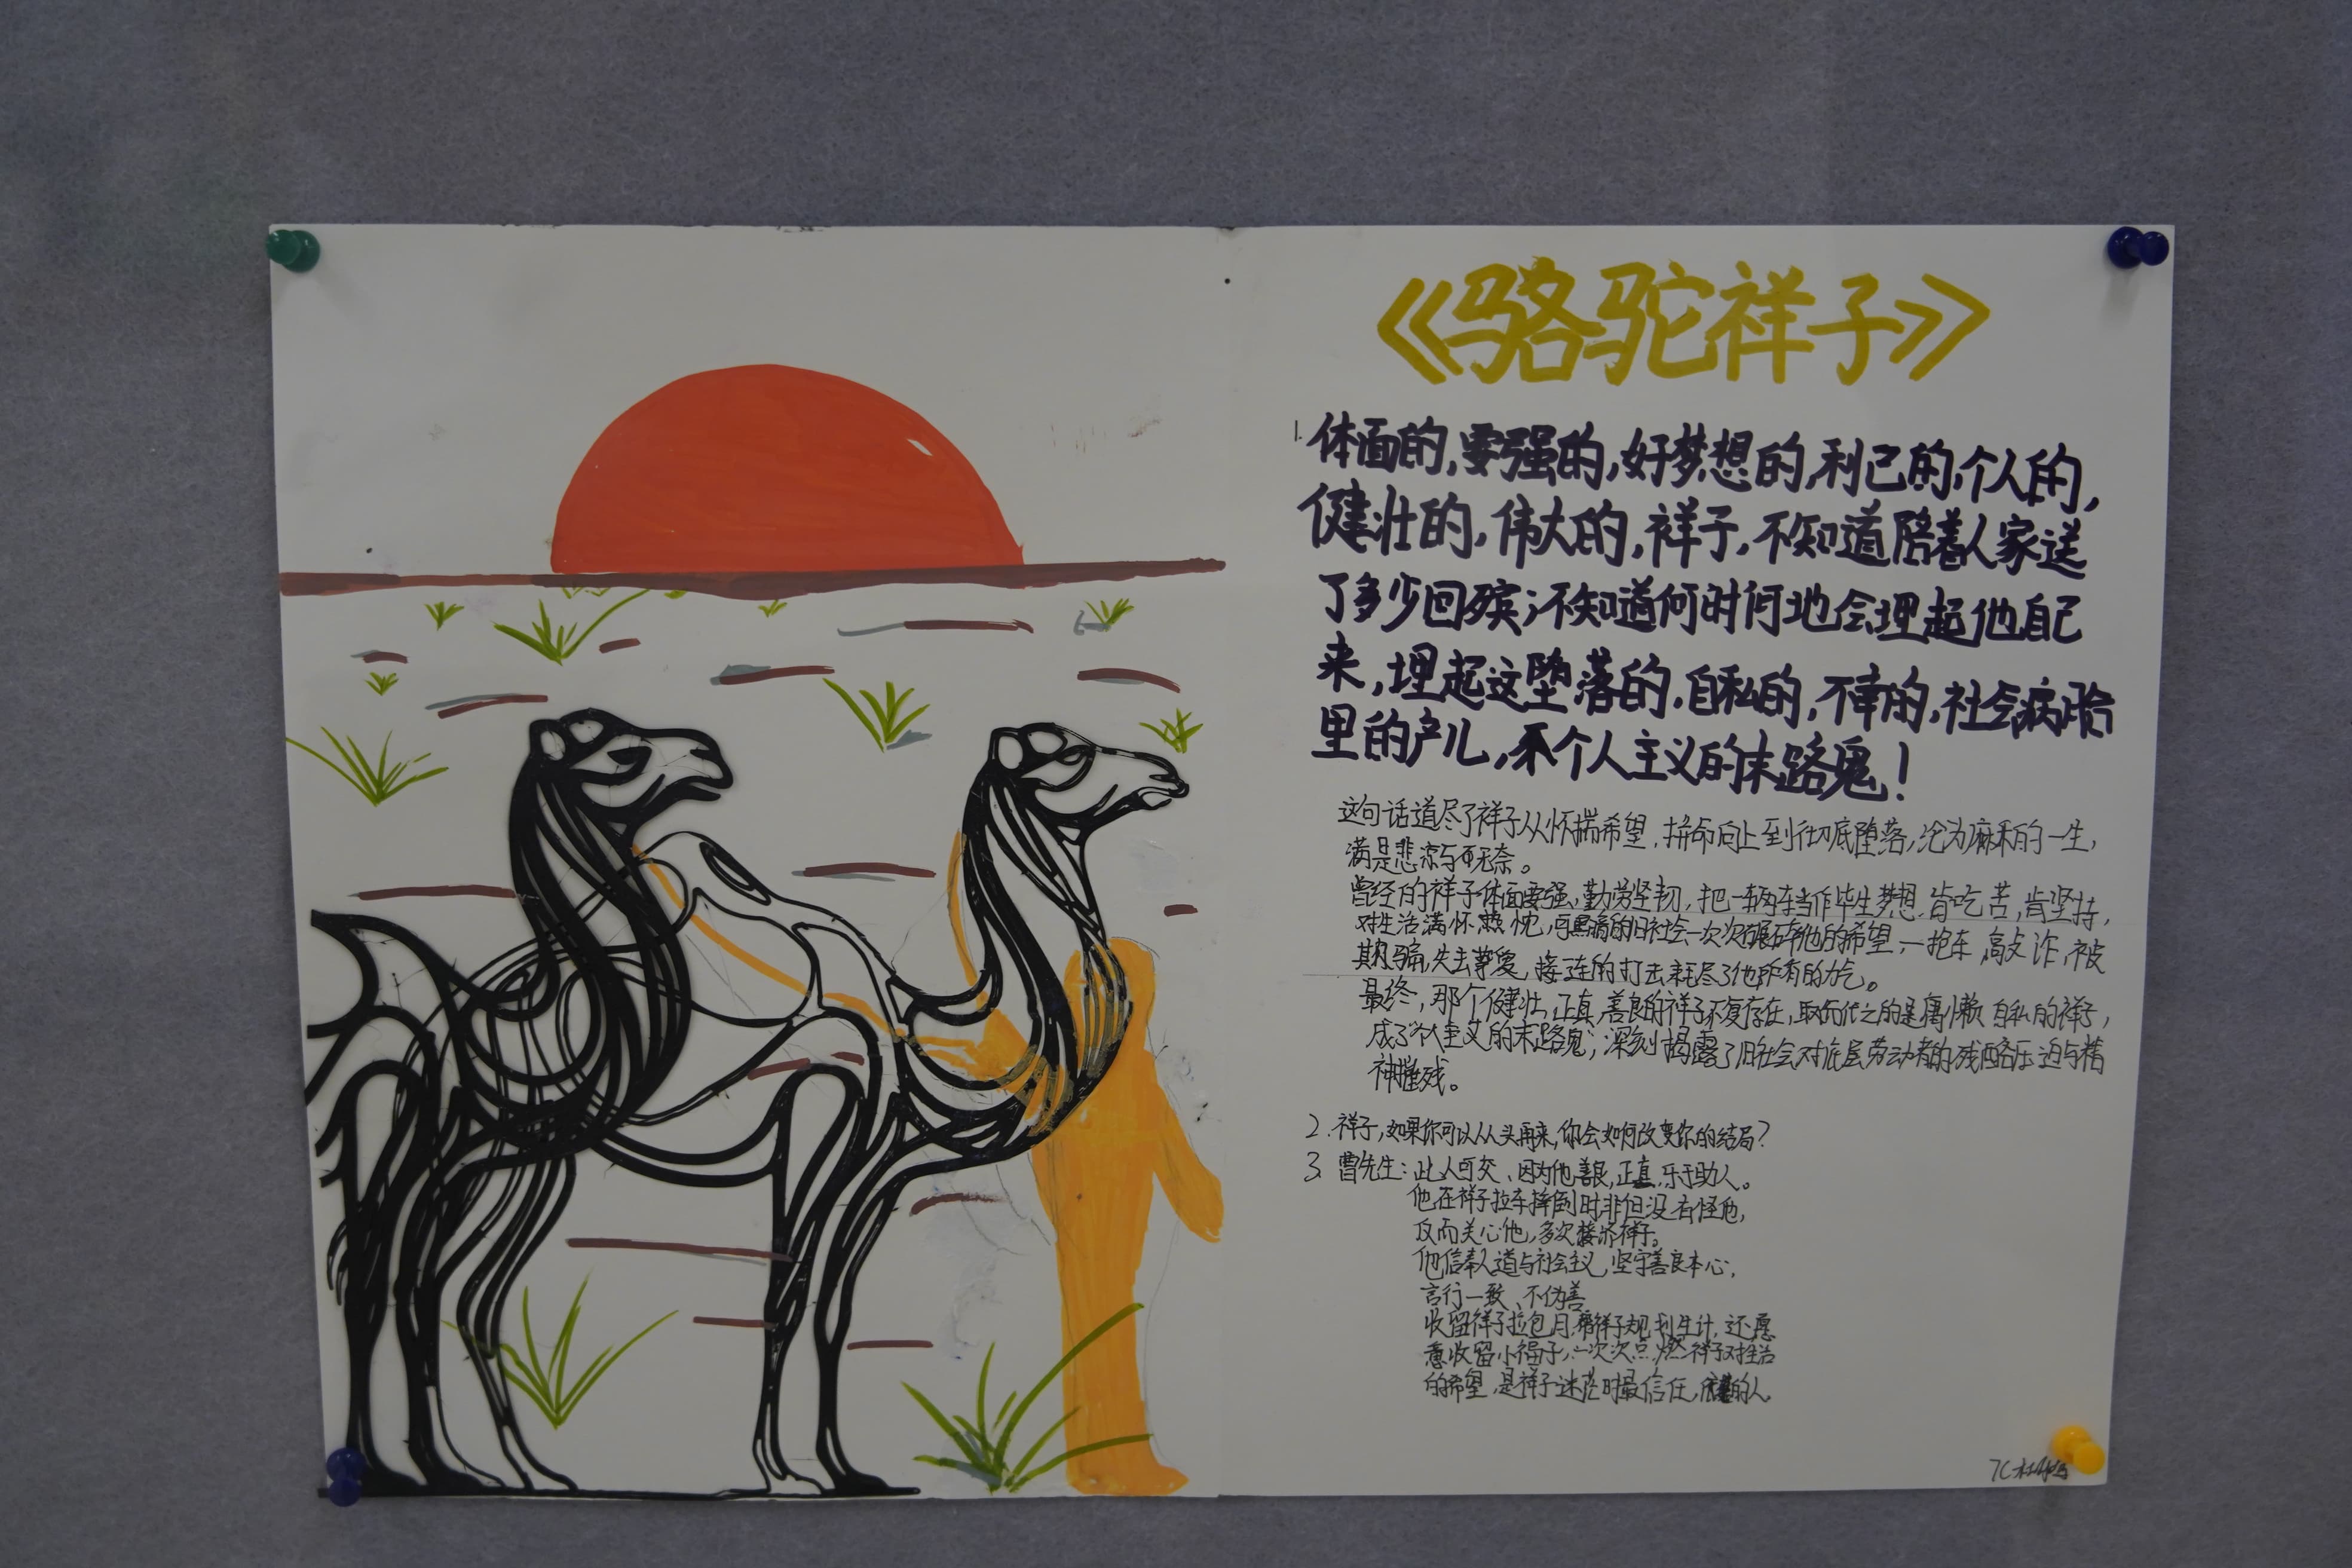 《骆驼祥子》
1. 体面的,要强的,好梦想的,利己的,个人的,
健壮的,伟大的,祥子,不知道陪着人家送
了多少回殡;不知道何时何地会埋起他自己
来,埋起这堕落的,自私的,不幸的,社会病胎
里的产儿,个人主义的末路鬼!
这句话道尽了祥子从怀揣希望,拼命向上到彻底堕落,沦为麻木的一生,
满是悲凉与无奈。
曾经的祥子体面要强,勤劳坚韧,把一辆车当作毕生梦想,肯吃苦,肯坚持,
对生活满怀热忱,可黑暗的旧社会一次次碾碎他的希望,一抢车,敲诈,被
欺骗,失去挚爱,接连的打击耗尽了他所有的力气。
最终,那个健壮,正直,善良的祥子不复存在,取而代之的是慵懒,自私的祥子,
成了个人主义的末路鬼;深刻揭露了旧社会对底层劳动者的残酷压迫与精
神摧残。
2. 祥子,如果你可以从头再来,你会如何改变你的结局?
3. 曹先生:此人可交、因为他善良,正直,乐于助人。
他在祥子拉车摔倒时非但没有怪他,
反而关心他,多次接济祥子。
他信奉人道与社会主义,坚守善良本心,
言行一致、不伪善
收留祥子拉包月,帮祥子规划生计,还愿
意收留小福子,一次次点燃祥子对生活
的希望,是祥子迷茫时最信任,的人
7C